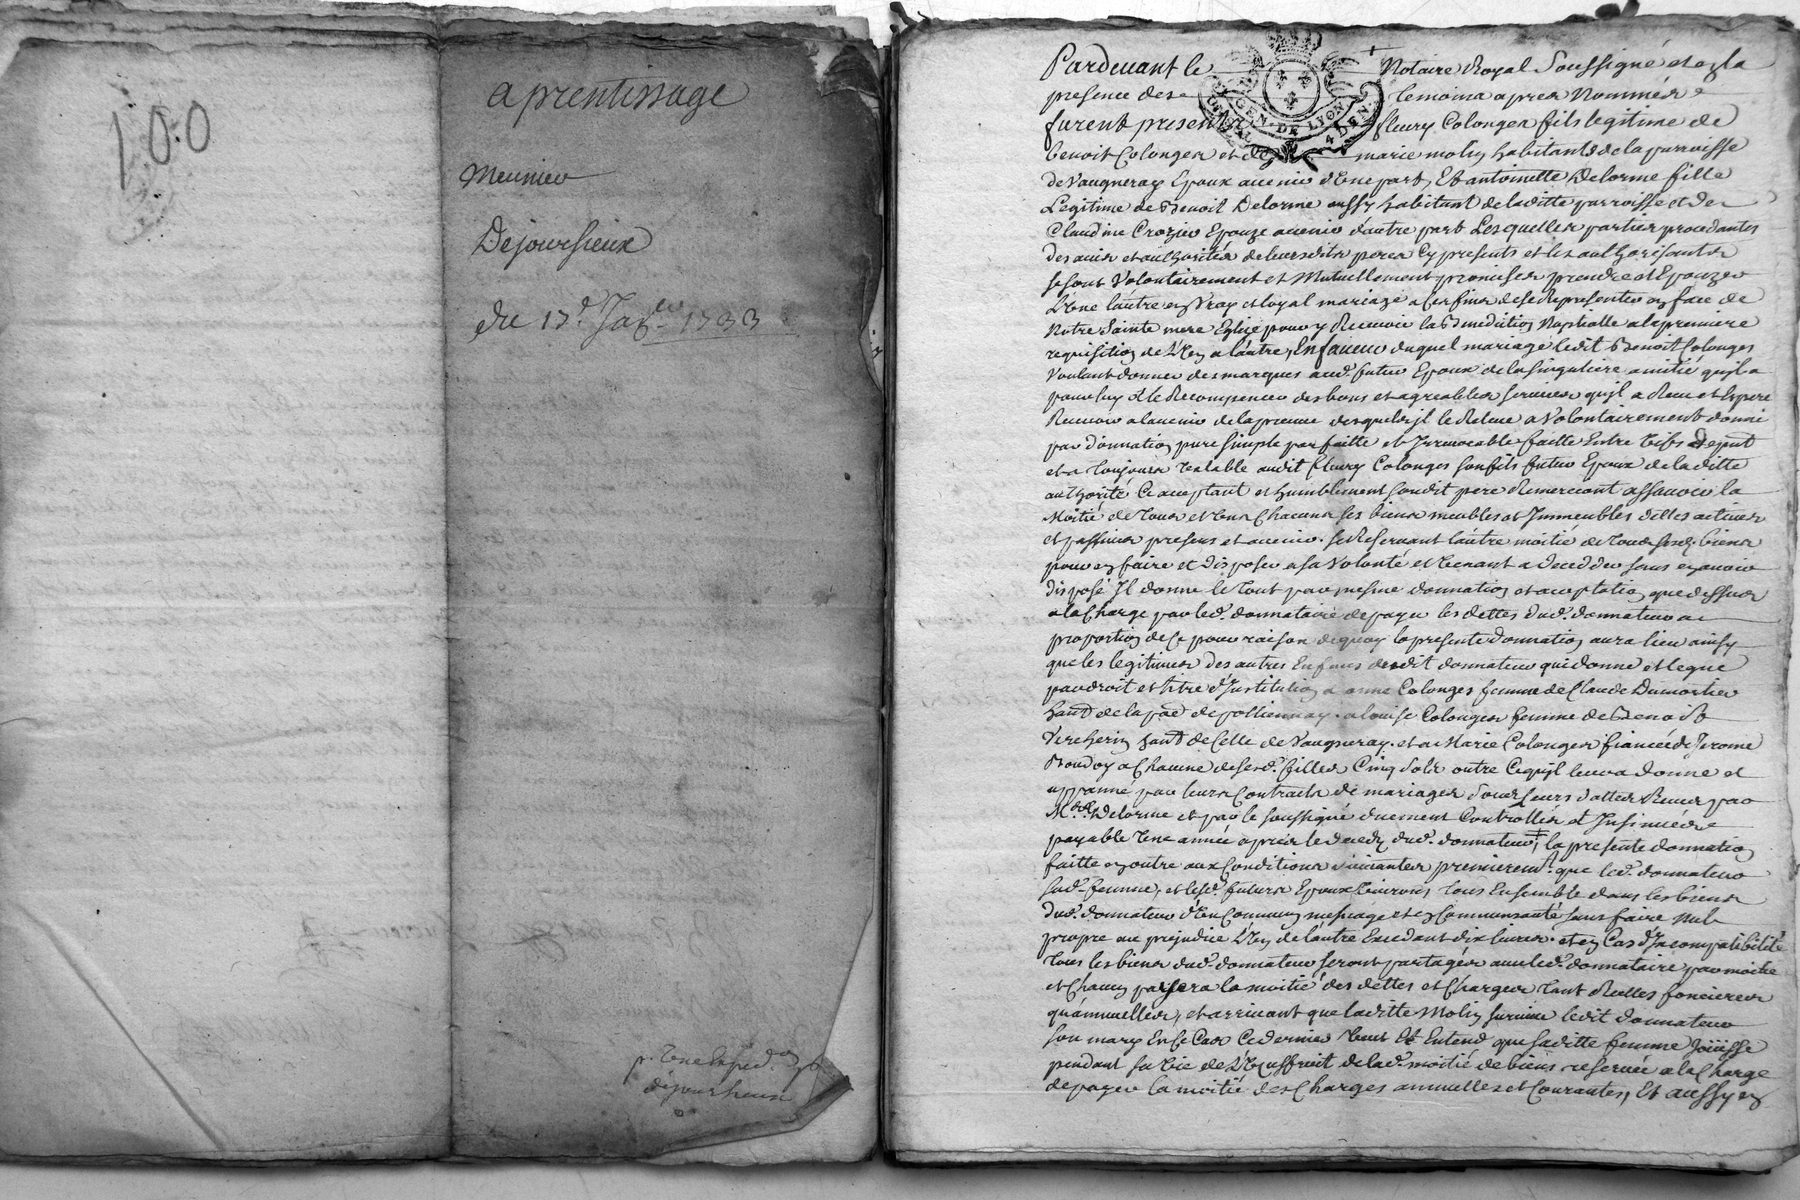 100
aprentissage
Meunier
Dejoursieux
du 17e. Ja 1733
p. Une Exped.on
dejoursieux
Pardevant le Notaire Royal Soussigné et en la
GEN. DE LYON
4 DEN.
presence des temoins apres Nommés
furent presents fleury Colonges fils legitime de
benoit Colonges et de marie molin habitants de la parroisse
de Vaugneray Epoux avenir d'Une part, Et antoinette Delorme fille
Legitime de Benoit Delorme aussy habitant de laditte parroisse et de
Claudine Crozier Epouze avenir d'autre part Lesquelles parties procedantes
des avis et authorités de leursdits peres Cy presents et les authorisants
se sont Volontairement et Mutuellement promises prendre et Epouzer
L'Une l'autre en Vray et loyal mariage a Ces fins de se Representer en face de
Notre Sainte mere Eglise pour y Recevoir la Benediction Nuptialle a la premiere
requisition de L'Un a l'autre, En faveur duquel mariage ledit Benoit Colonges
Voulant donner des marques aud. futur Epoux de la singuliere amitié qu'il a
pour luy et le Recompenser des bons et agreables services qu'il a Receu et Espere
Recevoir a l'avenir de la preuve desquels il le Releve a Volontairement donné
par donnation pure simple parfaitte et Irrevocable faitte Entre Vifs
et a toujours Valable audit fleury Colonges son fils futur Epoux de laditte
authorité Ce aceptant et humblement sondit pere Remerciant assavoir la
Moitié de Tous et Uns Chacuns ses biens meubles et Immeubles dettes actives
et passives presens et avenir. se Reservant l'autre moitié de Tous sesd. biens
pour en faire et disposer a sa Volonté et Venant a decedder sans en avoir
disposé Il donne le tout par mesme donnation et aceptation que dessus
a la Charge par led. donnataire de payer les dettes dud. donnateur a
proportion de Ce pour raison de quoy la presente donnation aura lieu ainsy
que les legitimes des autres Enfans dudit donnateur qui donne et legue
par droit et titre d'Institution a anne Colonges femme de Claude Dumortier
hant de la psse de pollionnay. a louise Colonges femme de Benoist
Vercherin hant de Celle de Vaugneray. et a Marie Colonges fiancée de Jerome
a Chacune desesd. filles Cinq Sols outre Ce qu'il leur a donné et
par leurs Contrats de mariages sous leurs dattes Receus par
M.e Delorme et par le soussigné duement Controllés et Insinués
payable Une année apres le deceds dud. donnateur, la presente donnation
faitte en outre aux Conditions suivantes premierement. que led. donnateur
sad. femme, et lesd. futurs Epoux Vivront Tous Ensemble dans les biens
dud. donnateur d'Un Commun mesnage et en Communauté sans faire Nul
propre au prejudice L'Un de l'autre Excedant dix livres. et en Cas d'Incompatibilité
tous les biens dud. donnateur seront partagés avec led. donnataire par moitié
et Chacun payera la moitié des dettes et Charges tant Reelles foncieres
qu'annuelles, et arrivant que laditte Molin survive ledit donnateur
son mary En Ce Cas Ce dernier Veut Et Entend que saditte femme Jouisse
pendant sa Vie de L'Usuffruit de lad. moitié de biens reservée a la Charge
de payer la moitié des Charges annuelles et Courantes, Et aussy en